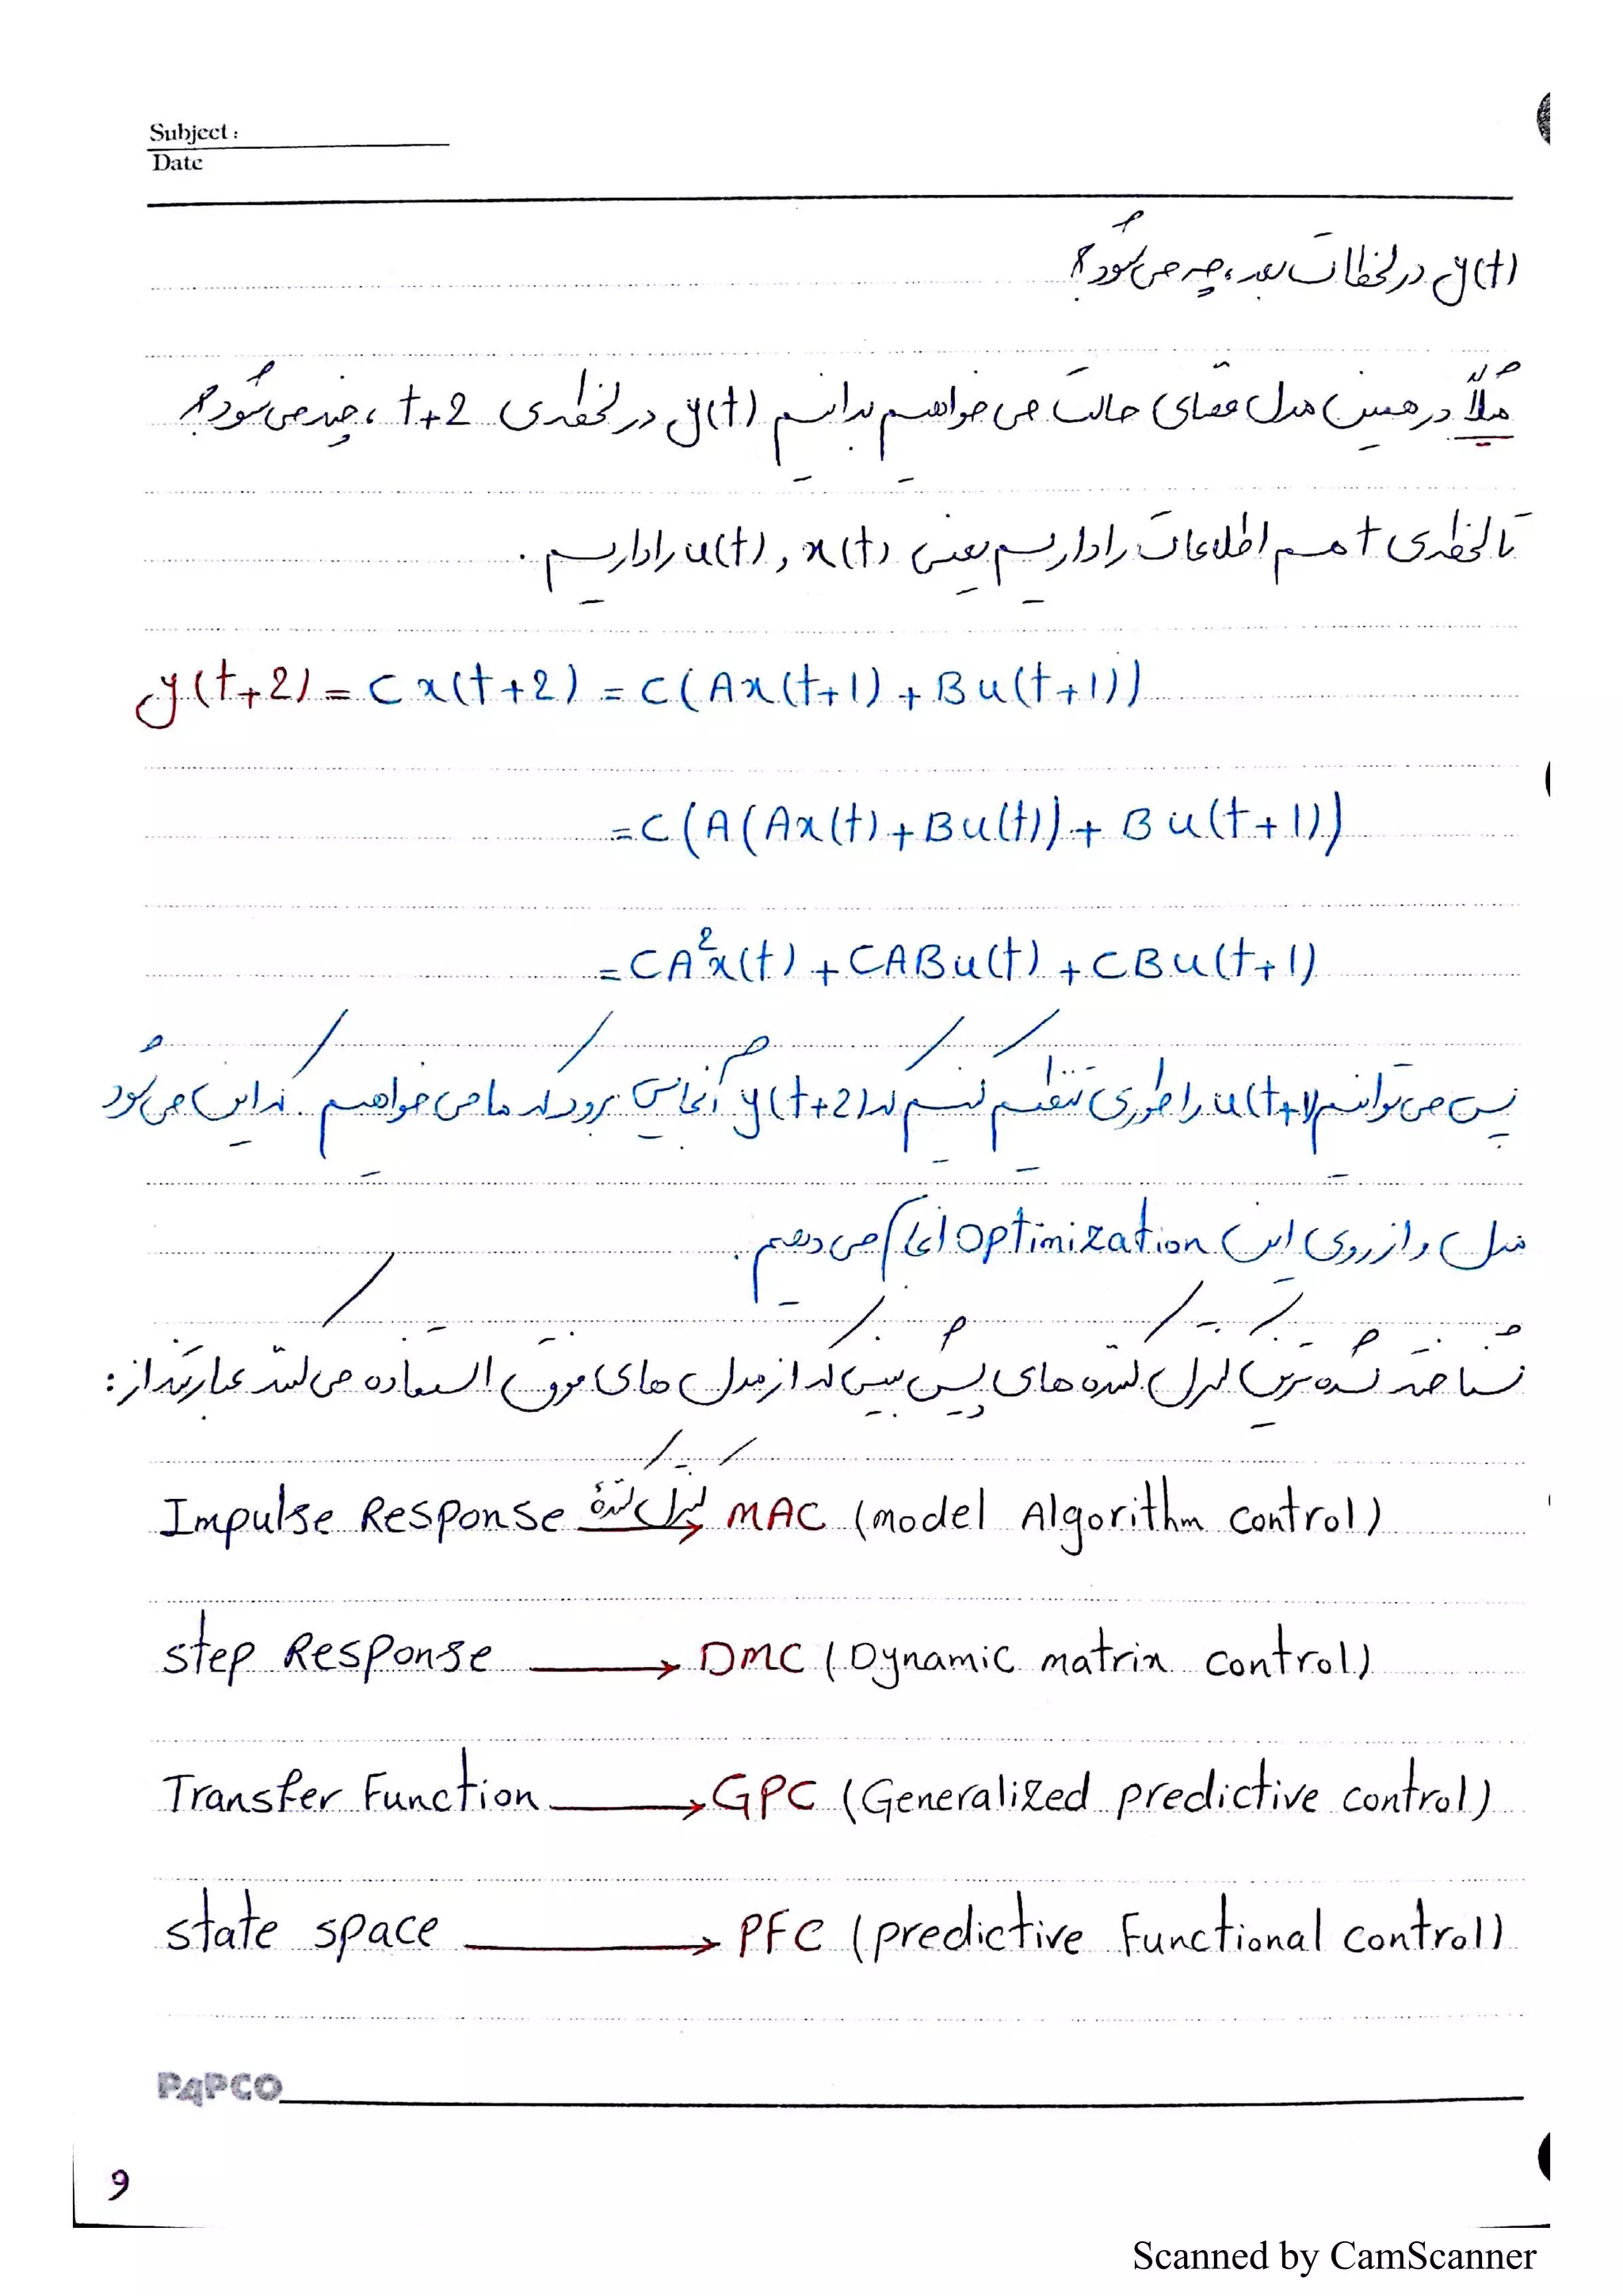 Subject :
Date
y(t) در لحظات بعد، چه می‌شود؟
مثلاً در همین مدل فضای حالت می خواهیم بدانیم y(t) در لحظه‌ی t+2 ، چند می‌شود؟
تا لحظه‌ی t هم اطلاعات را داریم یعنی x(t) , u(t) را داریم .
y(t+2) = C x(t+2) = C(Ax(t+1) + Bu(t+1))
= C(A(Ax(t) + Bu(t)) + Bu(t+1))
= CA²x(t) + CABu(t) + CBu(t+1)
پس می توانیم u(t+1) را طوری تنظیم کنیم که y(t+2) آنجایی برود که ما می خواهیم که این می‌شود
مدل و از روی این optimization انجام می دهیم .
شناخته شده ترین کنترل کننده های پیش بین که از مدل های فوق استفاده می کنند عبارتند از :
Impulse Response کنترل کنندهٔ → MAC (model Algorithm control)
step Response → DMC (Dynamic matrix control)
Transfer Function → GPC (Generalized predictive control)
state space → PFC (predictive Functional control)
PAPCO
9
Scanned by CamScanner